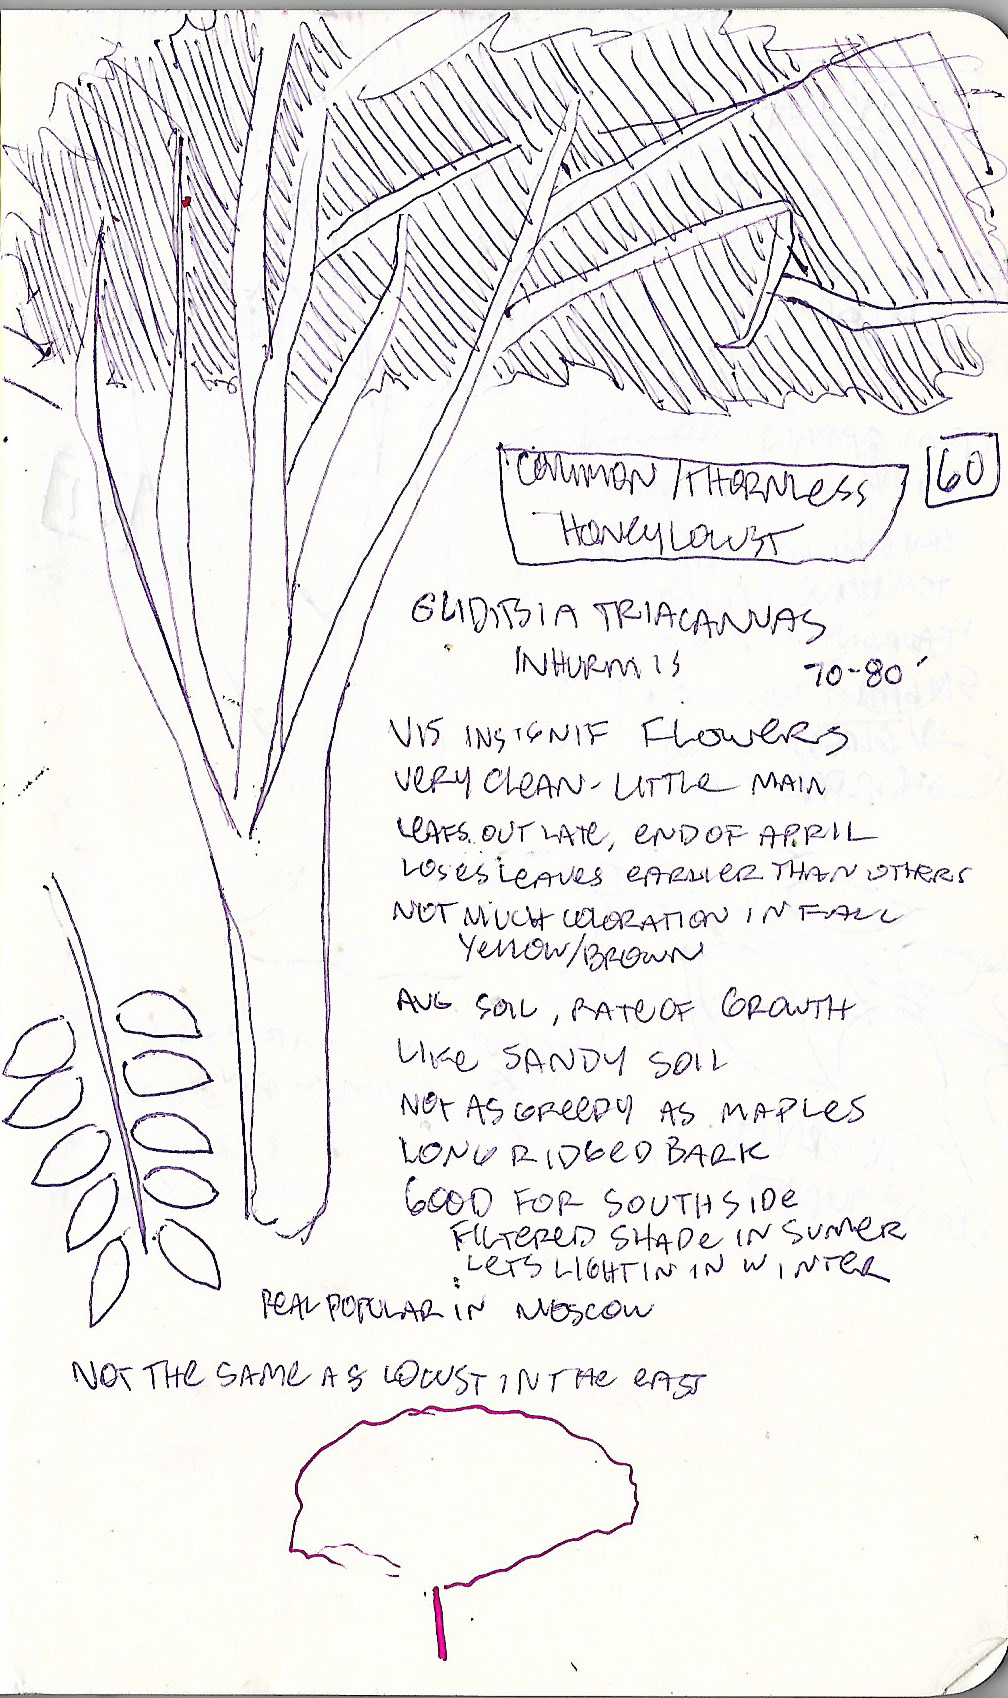 COMMON/THORNLESS
60
HONEYLOCUST
GLIDITSIA TRIACANNAS
INHURMIS 70-80'
VIS INSIGNIF FLOWERS
VERY CLEAN - LITTLE MAIN
LEAFS OUT LATE, END OF APRIL
LOSES LEAVES EARLIER THAN OTHERS
NOT MUCH COLORATION IN FALL
YELLOW/BROWN
AVG SOIL, RATE OF GROWTH
LIKE SANDY SOIL
NOT AS GREEDY AS MAPLES
LONG RIDGED BARK
GOOD FOR SOUTH SIDE
FILTERED SHADE IN SUMER
LETS LIGHT IN IN WINTER
REAL POPULAR IN MOSCOW
NOT THE SAME AS LOCUST IN THE EAST